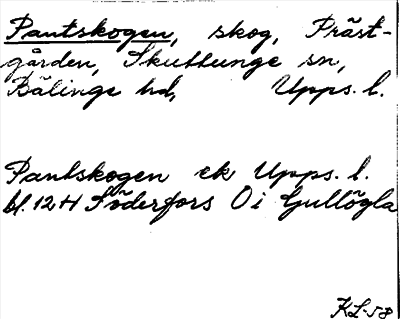 Pantskogen, skog, Präst-
gården, Skuttunge sn,
Bälinge hd, Upps. l.
Pantskogen ek Upps. l.
bl. 12 H Söderfors O i Gullögla
KL-58